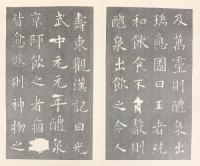 及萬靈則醴泉出
瑞應圖曰王者純
和飲食不貢獻則
醴泉出飲之令人
壽東觀漢記曰光
武中元元年醴泉
京師飲之者痼
皆愈然則神物之